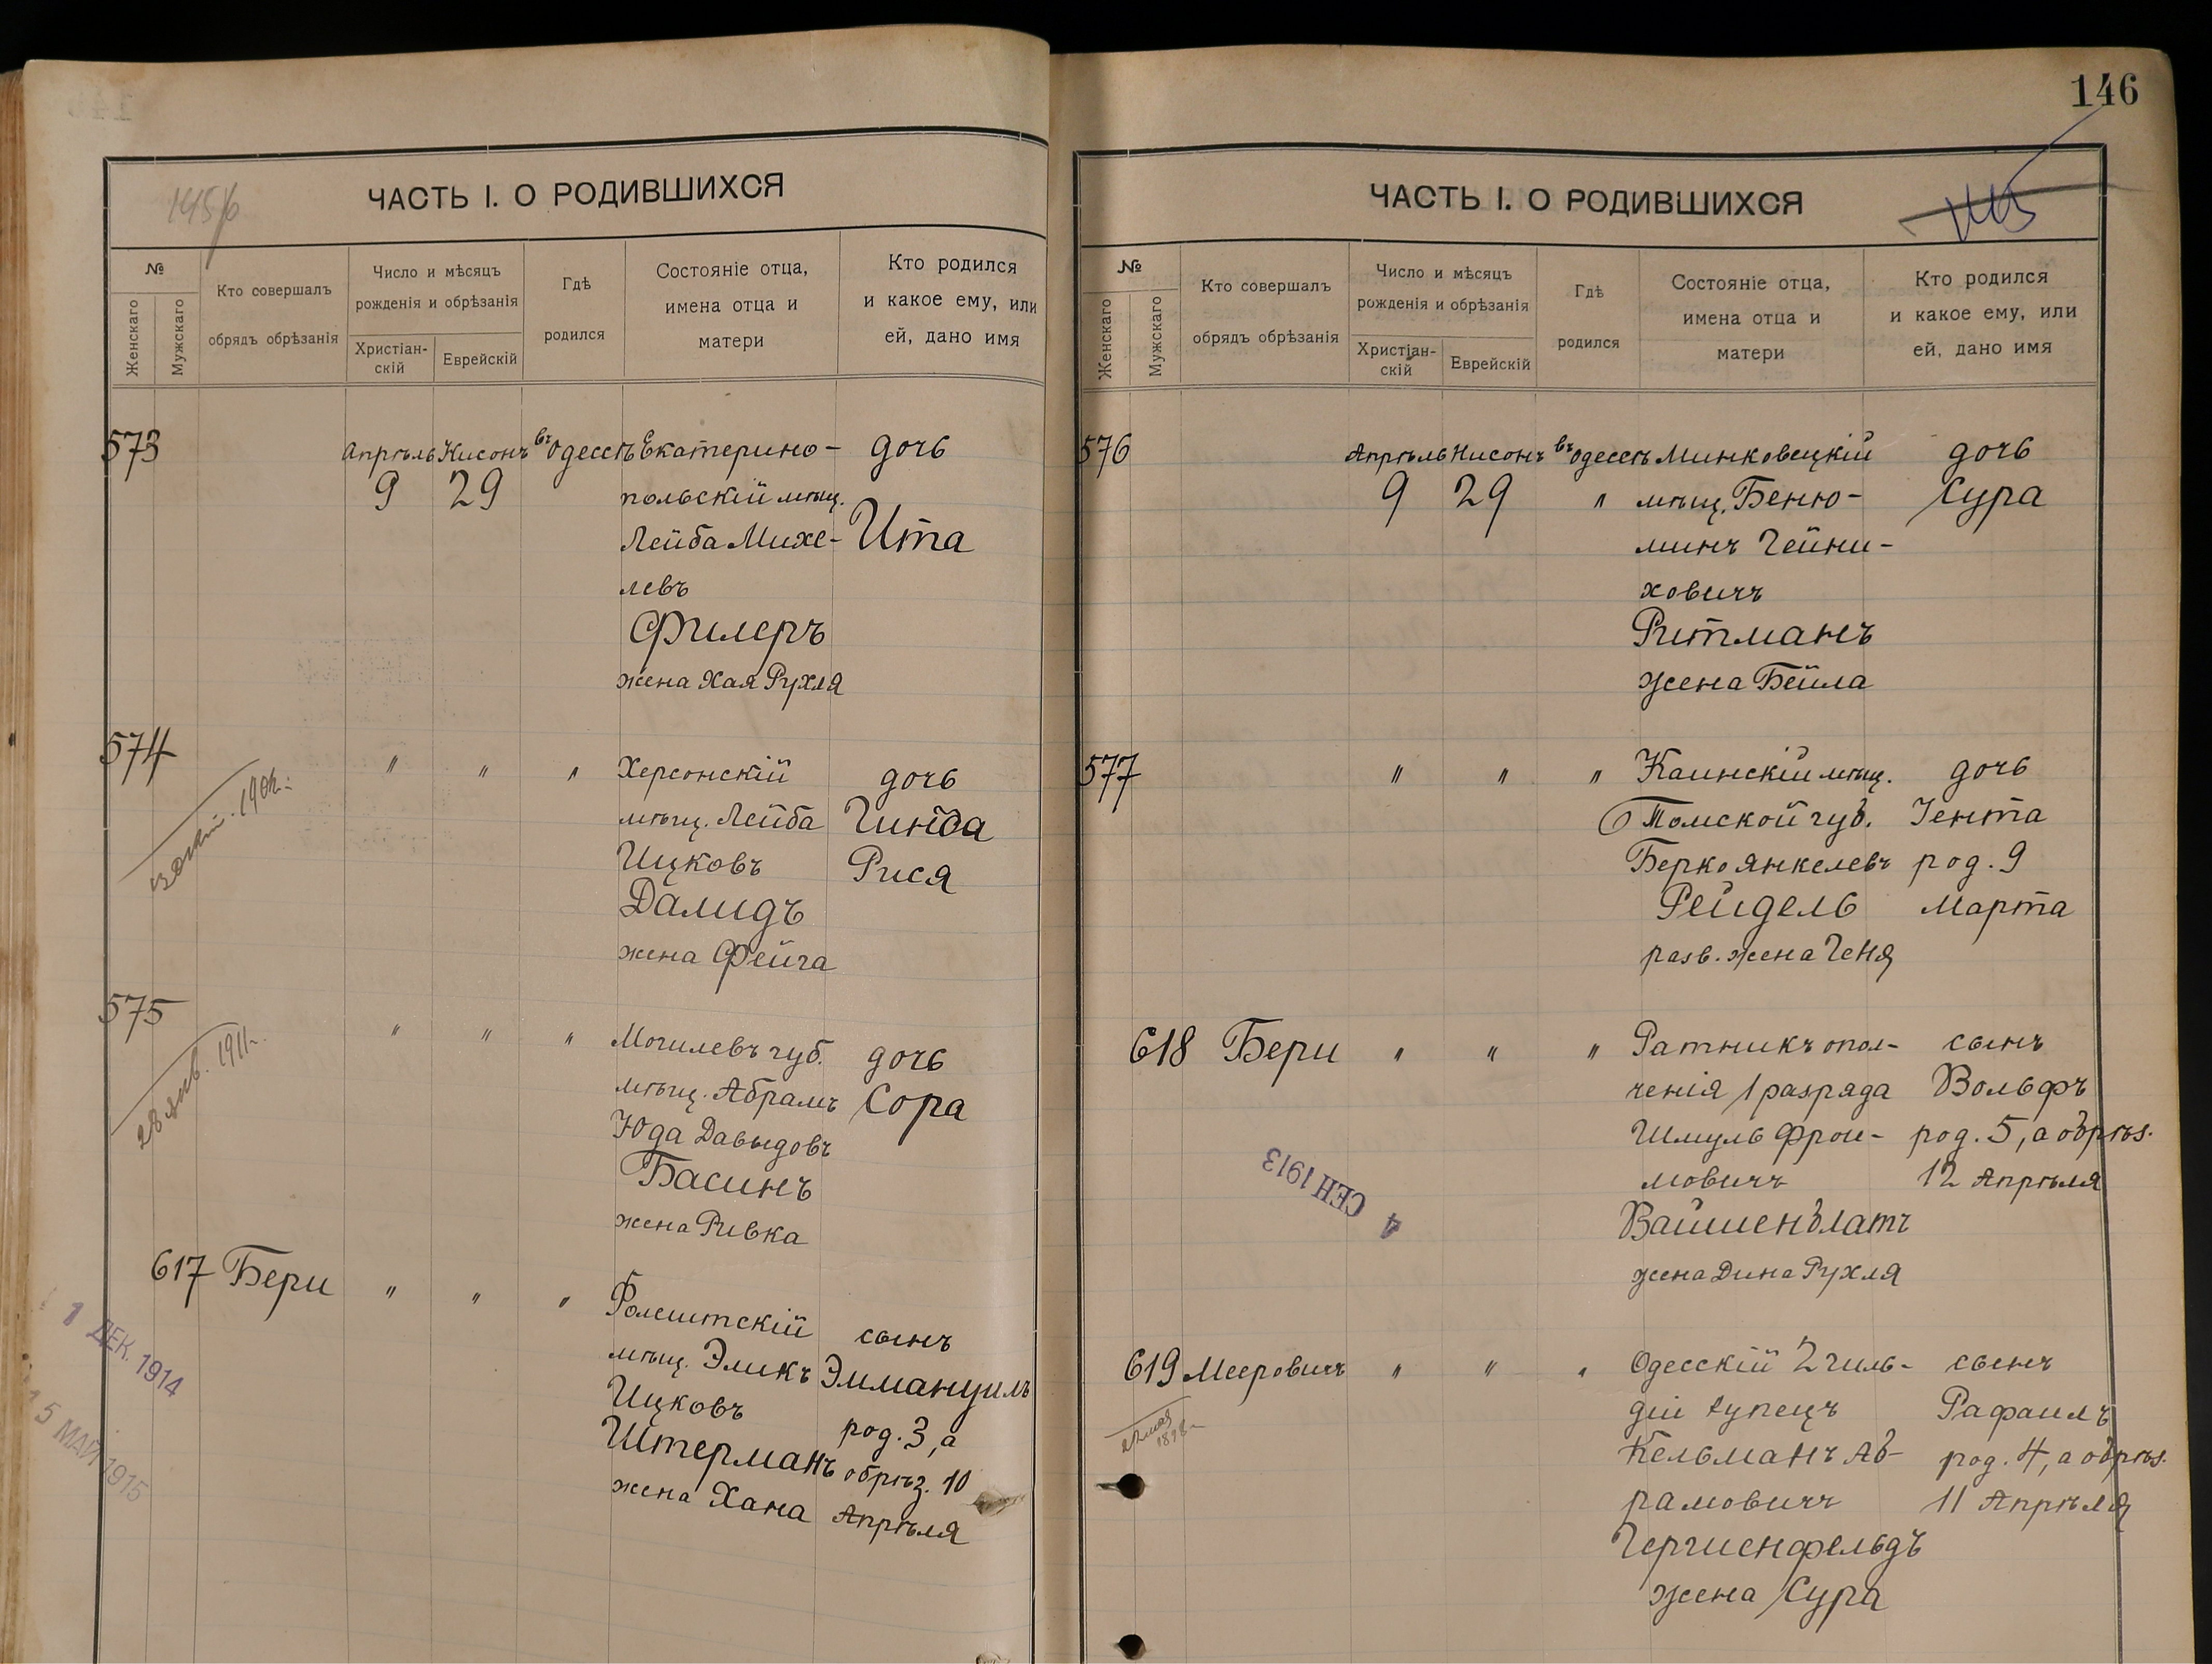 146
ЧАСТЬ I. О РОДИВШИХСЯ
№
Женскаго
Мужскаго
Кто совершалъ
обрядъ обрѣзанія
Число и мѣсяцъ
рожденія и обрѣзанія
Христіан-
скій
Еврейскій
Гдѣ
родился
Состояніе отца,
имена отца и
матери
Кто родился
и какое ему, или
ей, дано имя
573 Апрѣль Нисонъ въ Одессѣ Екатерино- дочь
9 29 польскій мѣщ.
Лейба Михе- Ита
левъ
Филеръ
жена Хая Рухля
574 " " " Херсонскій дочь
мѣщ. Лейба Гинда
Ицковъ Рися
Далидъ
жена Фейга
575 " " " Могилевъ губ. дочь
28 янв. 1911 г.
мѣщ. Абрамъ Сора
Юда Давыдовъ
Басинъ
жена Ривка
617 Бери " " " Фолештскій сынъ
1 ДЕК. 1914
мѣщ. Эликъ Эммануилъ
Ицковъ род. 3, а
5 МАЙ 1915
Штерманъ обрѣз. 10
жена Хана Апрѣля
ЧАСТЬ I. О РОДИВШИХСЯ
№
Женскаго
Мужскаго
Кто совершалъ
обрядъ обрѣзанія
Число и мѣсяцъ
рожденія и обрѣзанія
Христіан-
скій
Еврейскій
Гдѣ
родился
Состояніе отца,
имена отца и
матери
Кто родился
и какое ему, или
ей, дано имя
576 Апрѣль Нисонъ въ Одессѣ Минковецкій дочь
9 29 " мѣщ. Беню- Сура
минъ Гейни-
ховичъ
Ритманъ
жена Бейла
577 " " " Каинскій мѣщ. дочь
Томской губ. Іента
Берко Янкелевъ род. 9
Рейдель Марта
разв. жена Геня
618 Бери " " " Ратникъ опол- сынъ
ченія 1 разряда Вольфъ
Шмуль Фрои- род. 5, а обрѣз.
мовичъ 12 Апрѣля
4 СЕН 1913
Вайшенблатъ
жена Дина Рухля
619 Мееровичъ " " " Одесскій 2 гиль- сынъ
діи купецъ Рафаилъ
Кельманъ Аб- род. 4, а обрѣз.
рамовичъ 11 Апрѣля
Гершенфельдъ
жена Сура